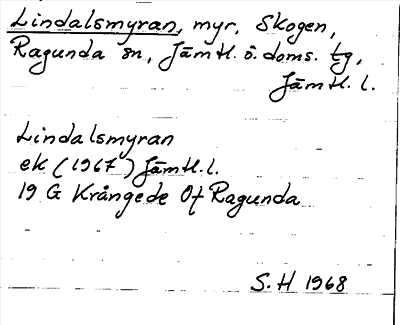 Lindalsmyran, myr, Skogen,
Ragunda sn, Jämtl. ö. doms. tg,
Jämtl. l.
Lindalsmyran
ek (1967) Jämtl. l.
19 G Krångede Of Ragunda
S.H 1968